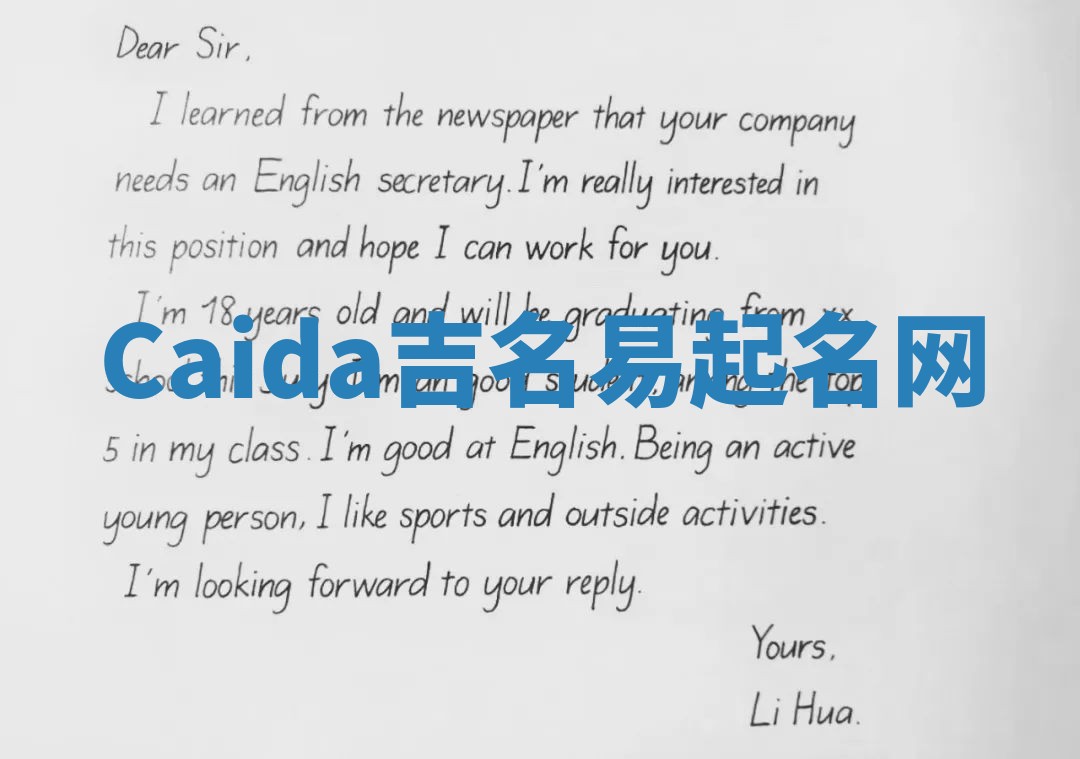 Dear Sir,
I learned from the newspaper that your company
needs an English secretary. I'm really interested in
this position and hope I can work for you.
I'm 18 years old and will be graduating from xx
Caida吉名易起名网
school July I'm an good student, among the top
5 in my class. I'm good at English. Being an active
young person, I like sports and outside activities.
I'm looking forward to your reply.
Yours,
Li Hua.